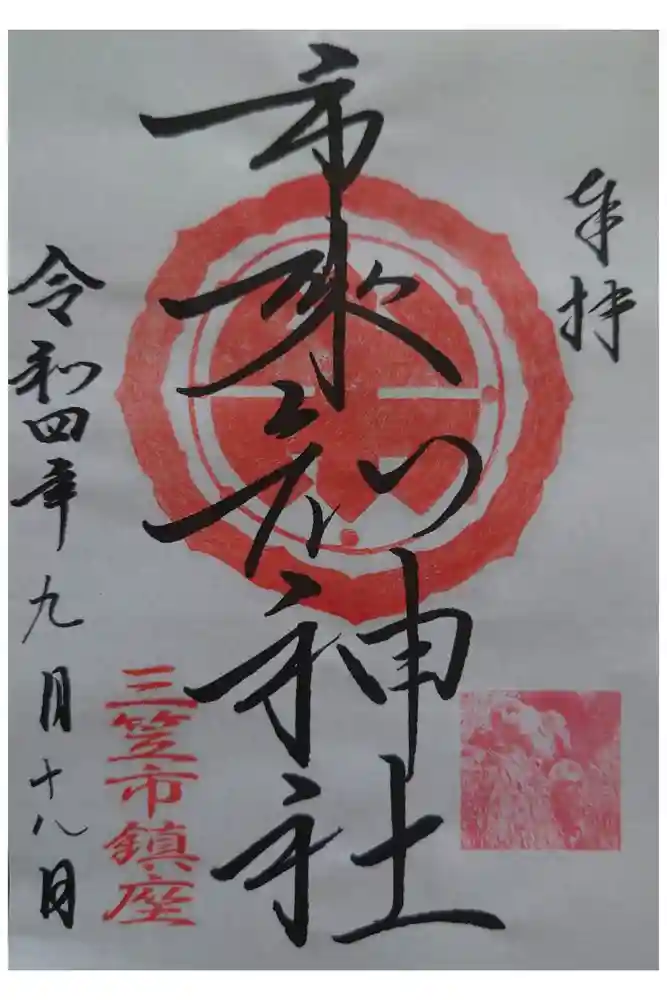 奉拝
市来知神社
三笠市鎮座
令和四年九月十八日